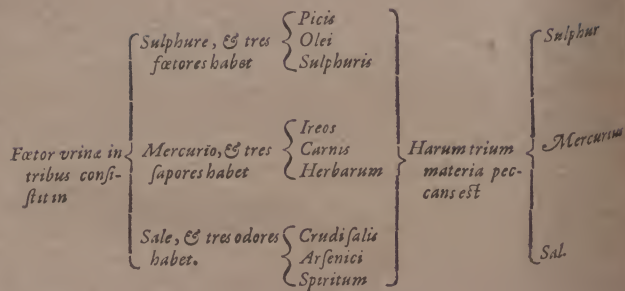 Fœtor vrinæ in
tribus consi-
stit in
Sulphure, & tres
fœtores habet
Picis
Olei
Sulphuris
Mercurio, & tres
sapores habet
Ireos
Carnis
Herbarum
Sale, & tres odores
habet.
Crudi salis
Arsenici
Spirituum
Harum trium
materia pec-
cans est
Sulphur
Mercurius
Sal.